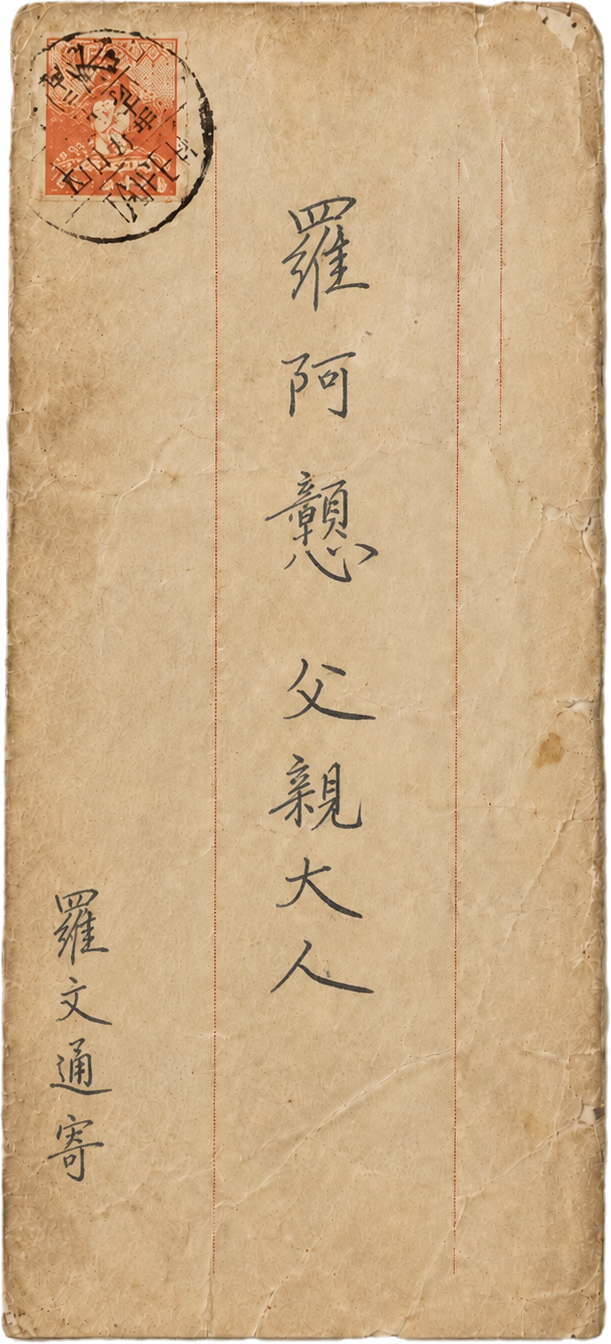 羅阿戇父親大人
羅文通寄